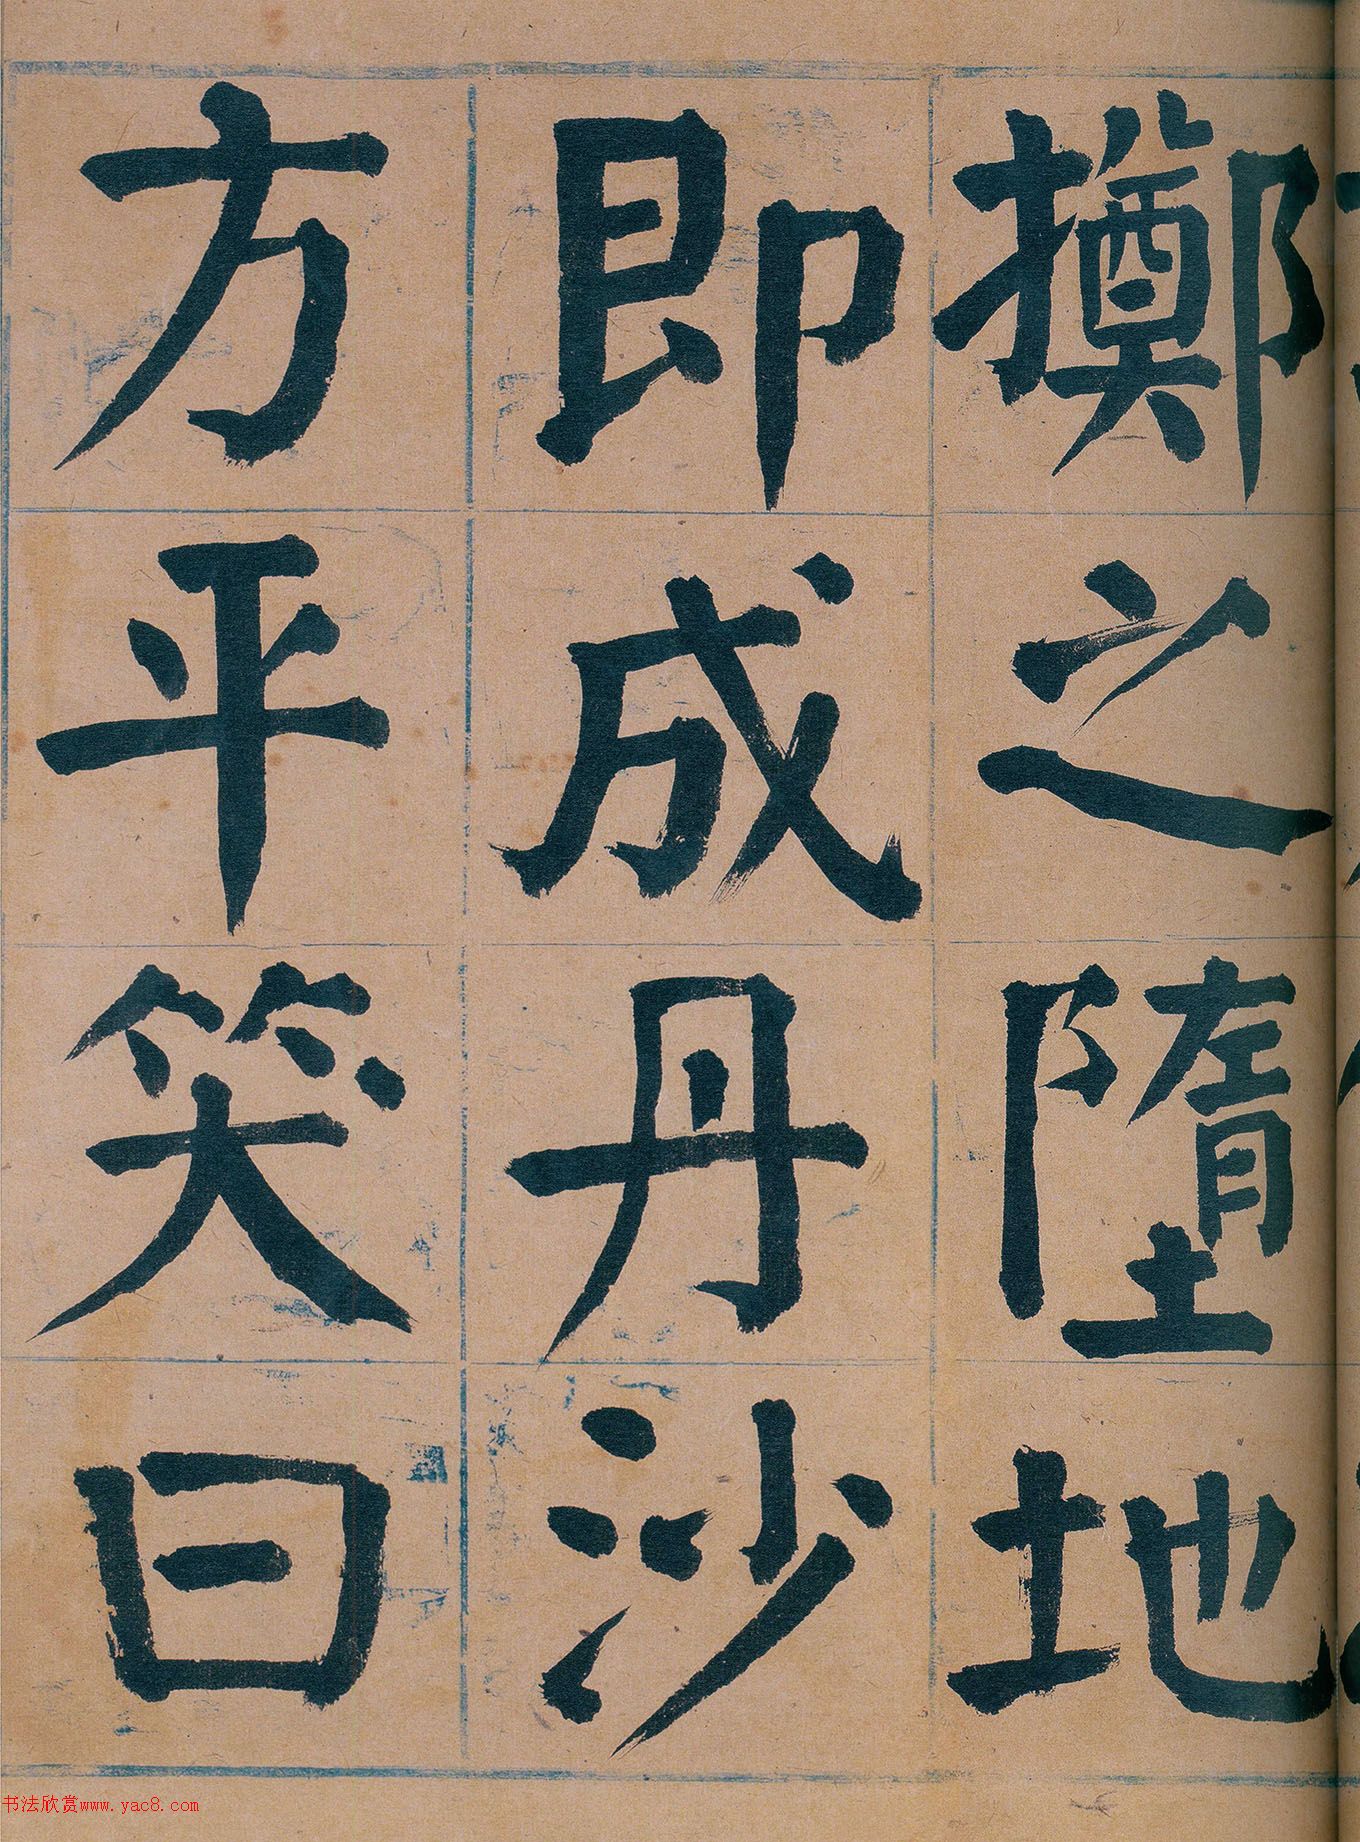 擲之墮地
即成丹沙
方平笑曰
书法欣赏www.yac8.com